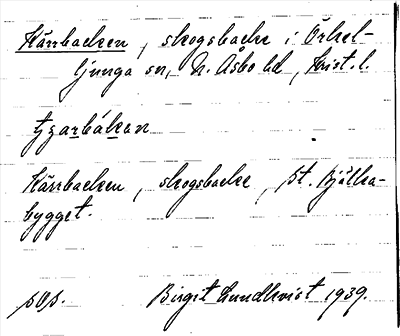 Kärrbacken, skogsbacke i Örkel-
ljunga sn, N. Åsbo hd, Krist. l.
tȿarbákan
Kärrbacken, skogsbacke, St. Bjälka-
bygget.
pOp. Birgit Lundkvist 1939.